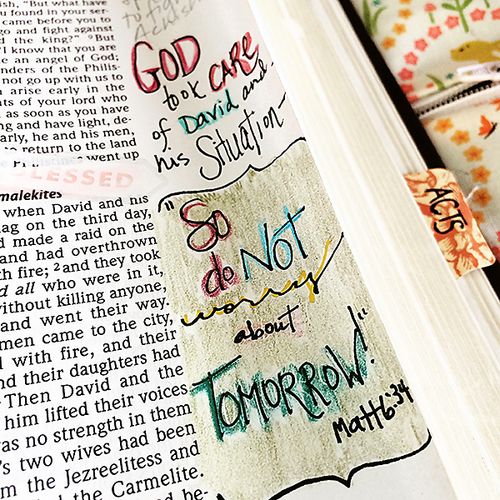 ish, "But what have
you found in your ser-
came before you to
go and fight against
the king?" 9But
"I know that you are
e an angel of God;
nders of the Philis-
not go up with us to
arise early in the
ts of your lord who
as soon as you have
ng and have light, de-
arly, he and his men,
to return to the land
went up
BLESSED
malekites
when David and his
ag on the third day,
made a raid on the
and had overthrown
th fire; 2and they took
d all who were in it,
without killing anyone,
and went their way.
men came to the city,
with fire, and their
nd their daughters had
Then David and the
him lifted their voices
as no strength in them
's two wives had been
m the Jezreelitess and
the Carmelite.
d be-
to fight
Achish
GOD
took CARE
of David and
his Situation-
"So
do NOT
worry
about
TOMORROW!"
Matt 6:34
ACTS